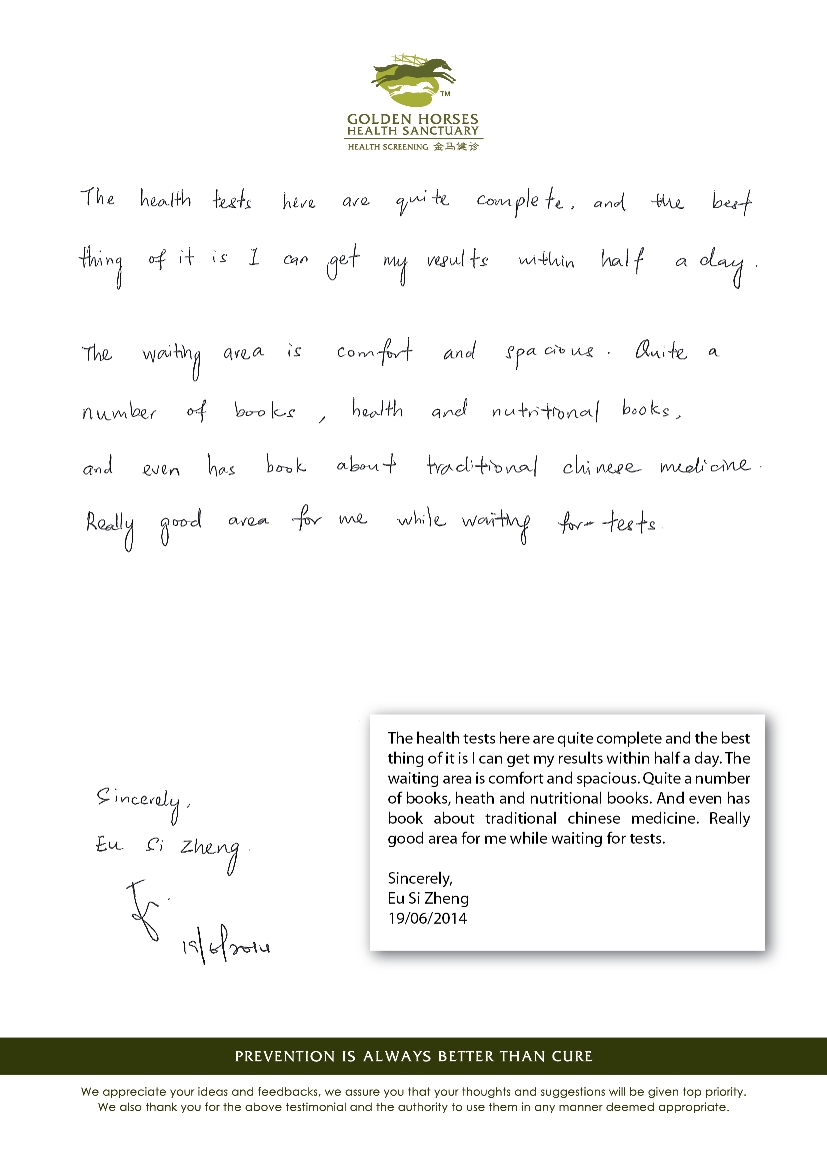 TM
GOLDEN HORSES
HEALTH SANCTUARY
HEALTH SCREENING 金马健诊
The health tests here are quite complete, and the best
thing of it is I can get my results within half a day.
The waiting area is comfort and spacious. Quite a
number of books, health and nutritional books,
and even has book about traditional chinese medicine.
Really good area for me while waiting for tests
Sincerely,
Eu Si Zheng.
19/6/2014
The health tests here are quite complete and the best
thing of it is I can get my results within half a day. The
waiting area is comfort and spacious. Quite a number
of books, heath and nutritional books. And even has
book about traditional chinese medicine. Really
good area for me while waiting for tests.
Sincerely,
Eu Si Zheng
19/06/2014
PREVENTION IS ALWAYS BETTER THAN CURE
We appreciate your ideas and feedbacks, we assure you that your thoughts and suggestions will be given top priority.
We also thank you for the above testimonial and the authority to use them in any manner deemed appropriate.